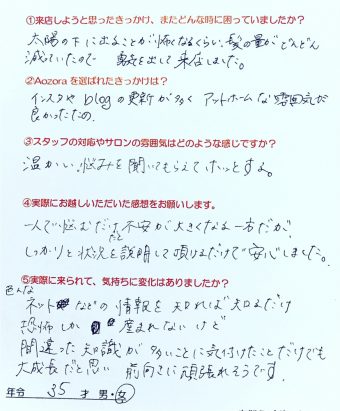 ①来店しようと思ったきっかけ、またどんな時に困っていましたか？
太陽の下に出ることが怖くなるくらい、髪の量がどんどん
減っていたので 勇気を出して来店しました。
②Aozoraを選ばれたきっかけは？
インスタや blogの更新が多く アットホームな雰囲気が
良かったため.
③スタッフの対応やサロンの雰囲気はどのような感じですか？
温かい.悩みを聞いてもらえてホッとする。
④実際にお越しいただいた感想をお願いします。
一人で悩むだけだと不安が大きくなる一方だが、
しっかりと状況を説明して頂けるだけで安心しました。
⑤実際に来られて、気持ちに変化はありましたか？
色んな
ネットなどの情報を知れば知るだけ
恐怖しか 産まれないけど
間違った知識が多いことに気付けたことだけでも
大成長だと思い 前向きに頑張れそうです.
年令 35 才 男・女